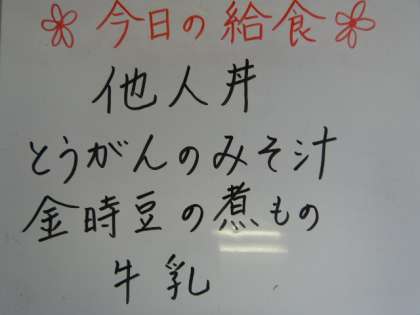 今日の給食
他人丼
とうがんのみそ汁
金時豆の煮もの
牛乳